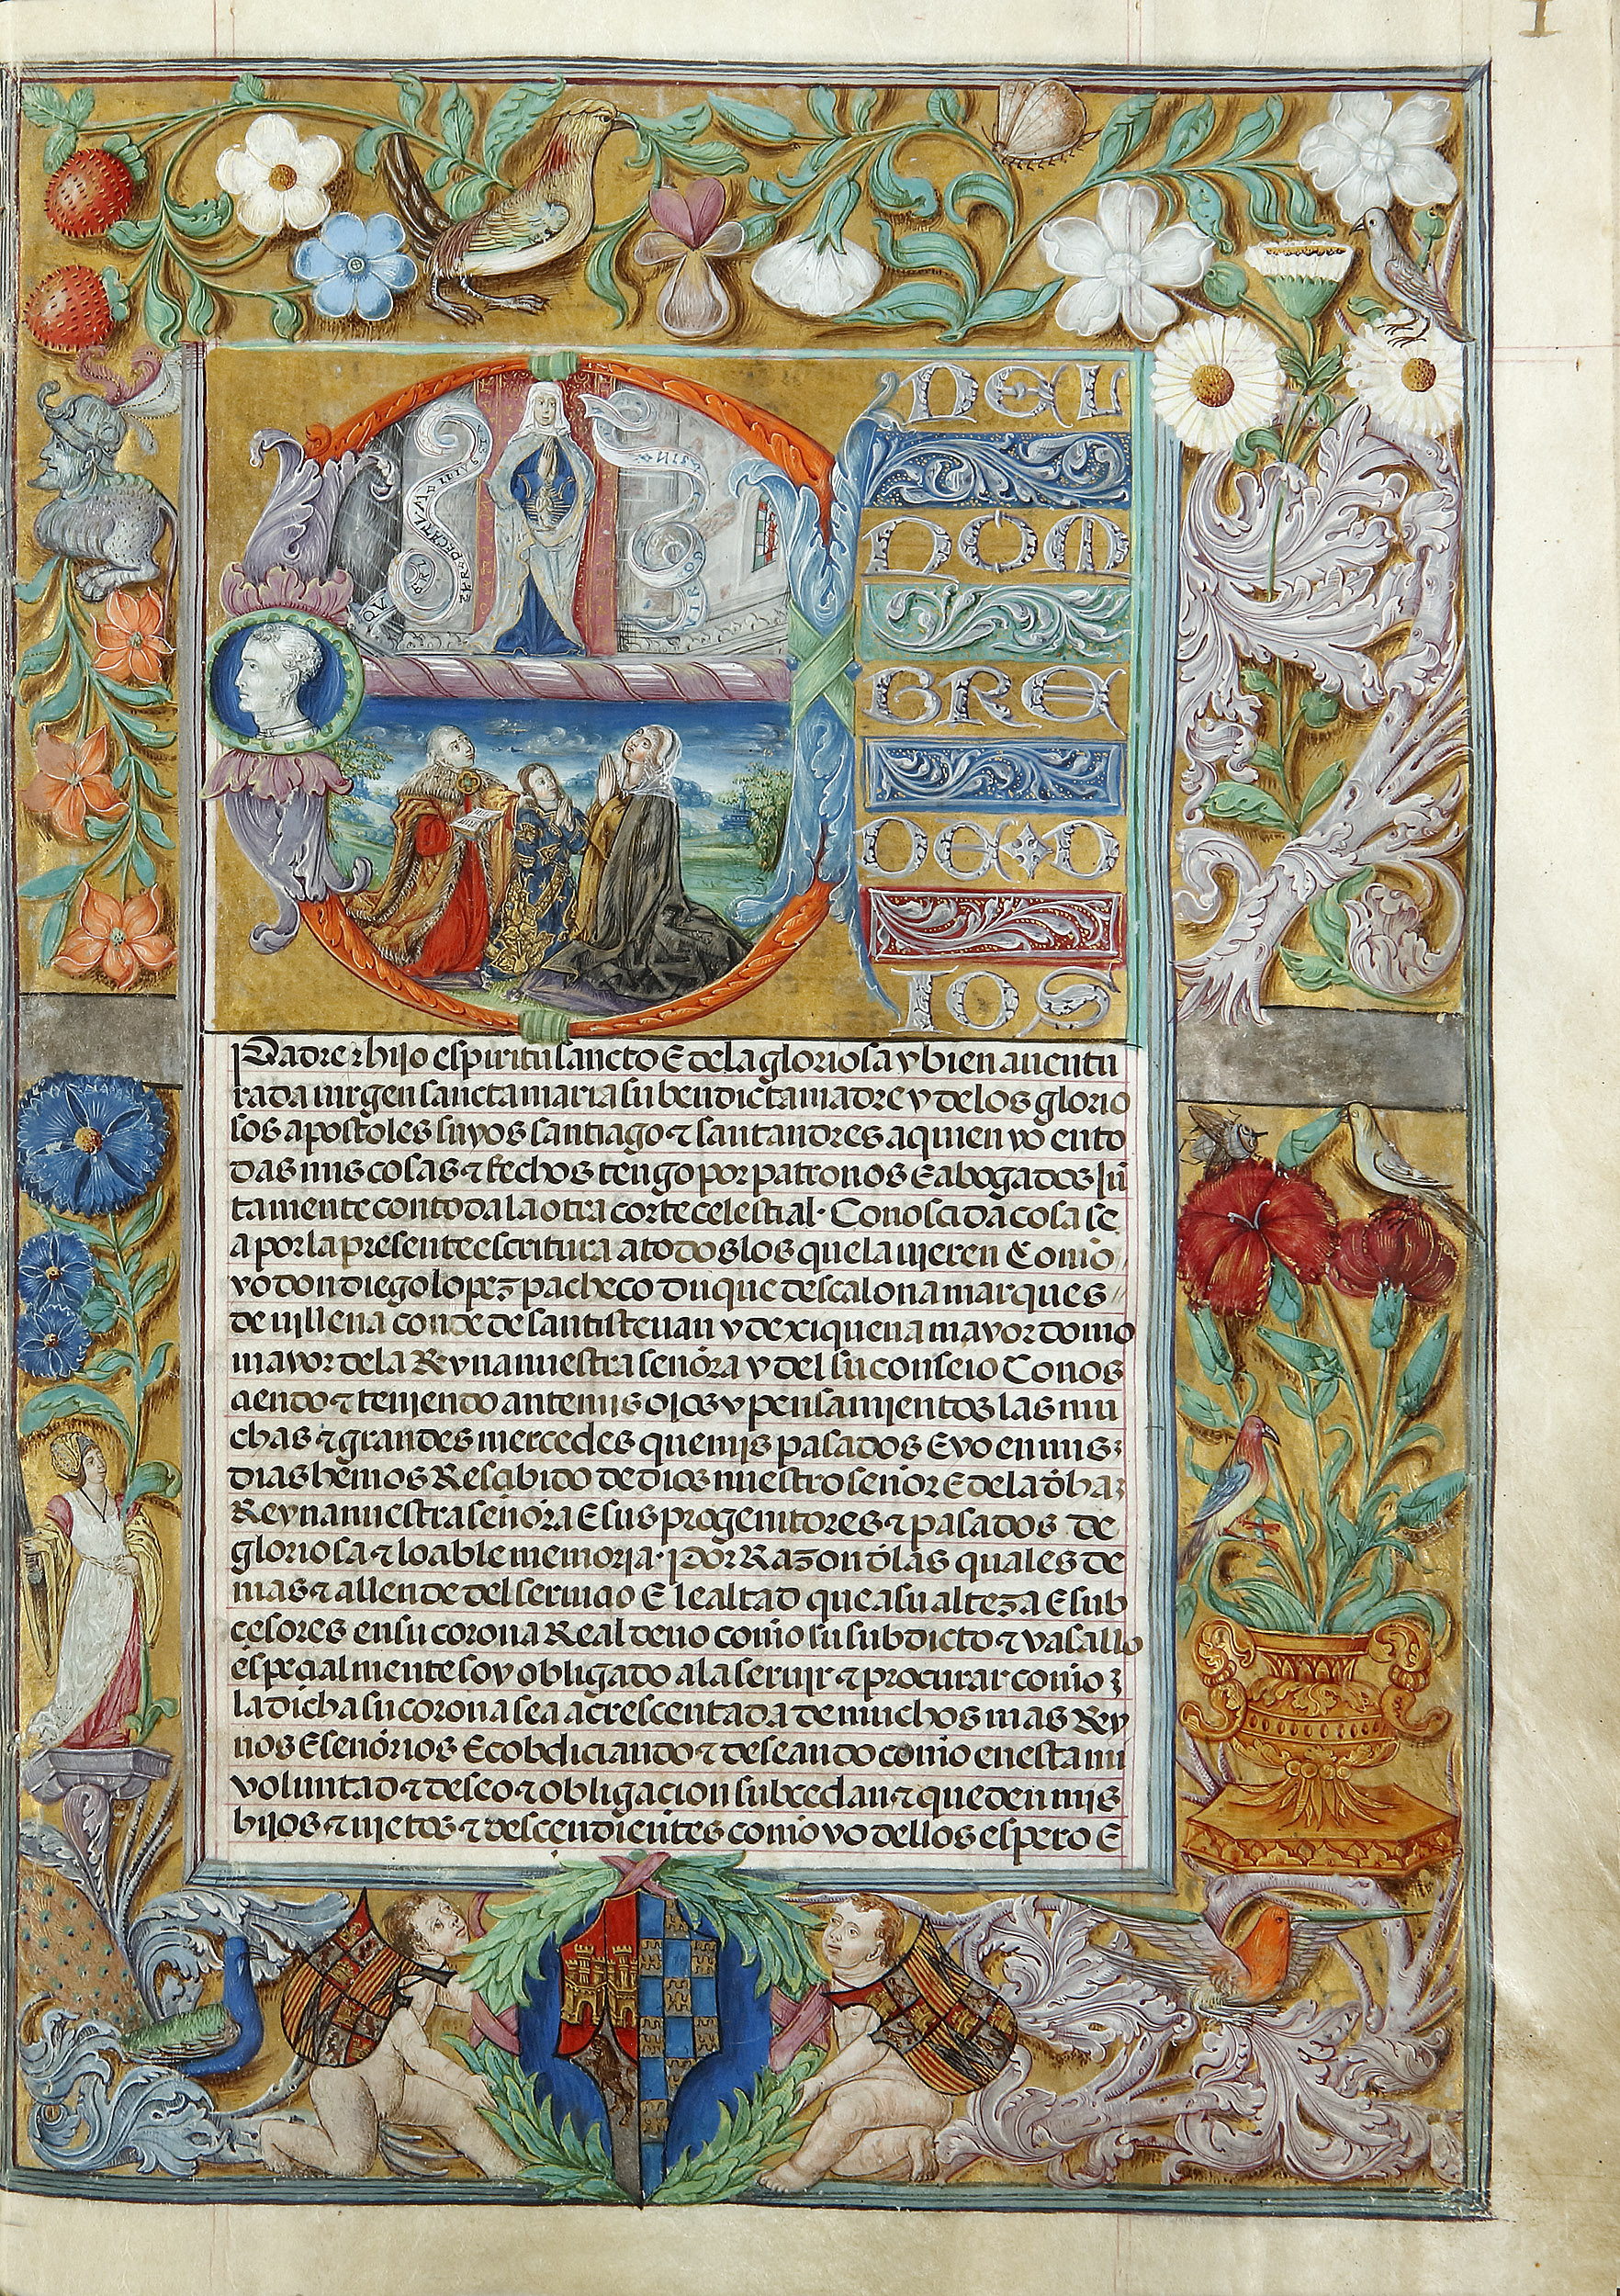 1
N DEL
NOM
BRE
DE D
IOS
Padre ⁊ hijo espiritu sancto E dela gloriosa y bien auentu
rada uirgen sancta maria su bendicta madre y delos glorio
sos apostoles suyos santiago ⁊ santandres a quien yo en to
das mis cosas ⁊ fechos tengo por patronos E abogados Jũ
tamente con toda la otra corte celestial · Conoscida cosa se
a por la presente escritura a todos los que la uieren Como
yo don diego lopez pacheco Duque descalona marques
de uillena conde de santisteuan y de xiquena mayordomo
mayor dela Reyna nuestra señora y del su conseio Conos
ciendo ⁊ teniendo ante mis ojos y pensamientos las mu
chas ⁊ grandes mercedes que mis pasados E yo en mis
dias hemos Rescibido de dios nuestro señor E dela dha
Reyna nuestra señora E sus progenitores ⁊ pasados de
gloriosa ⁊ loable memoria · Por Razon dlas quales de
mas ⁊ allende del seruicio E lealtad que a su alteza E sub
cesores en su corona Real deuo como su subdicto ⁊ vasallo
especialmente soy obligado a la seruir ⁊ procurar como
la dicha su corona sea acrescentada de muchos mas Rey
nos E señorios E cobdiciando ⁊ deseando como en esta mi
voluntad ⁊ deseo ⁊ obligacion subcedan ⁊ queden mis
hijos ⁊ nietos ⁊ descendientes como yo dellos espero E